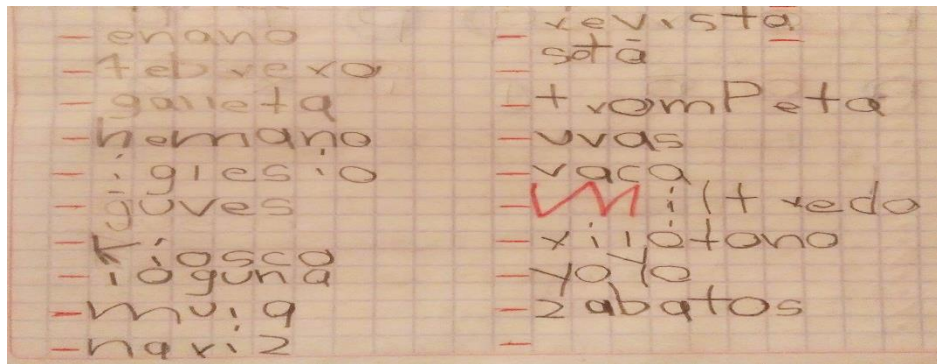 enano
febrero
galleta
hemano
iglesio
guves
Kiosco
loguna
muiq
nariz
revista
sofa
trompeta
uvas
vaca
Wilfredo
xilofono
yoyo
zabatos